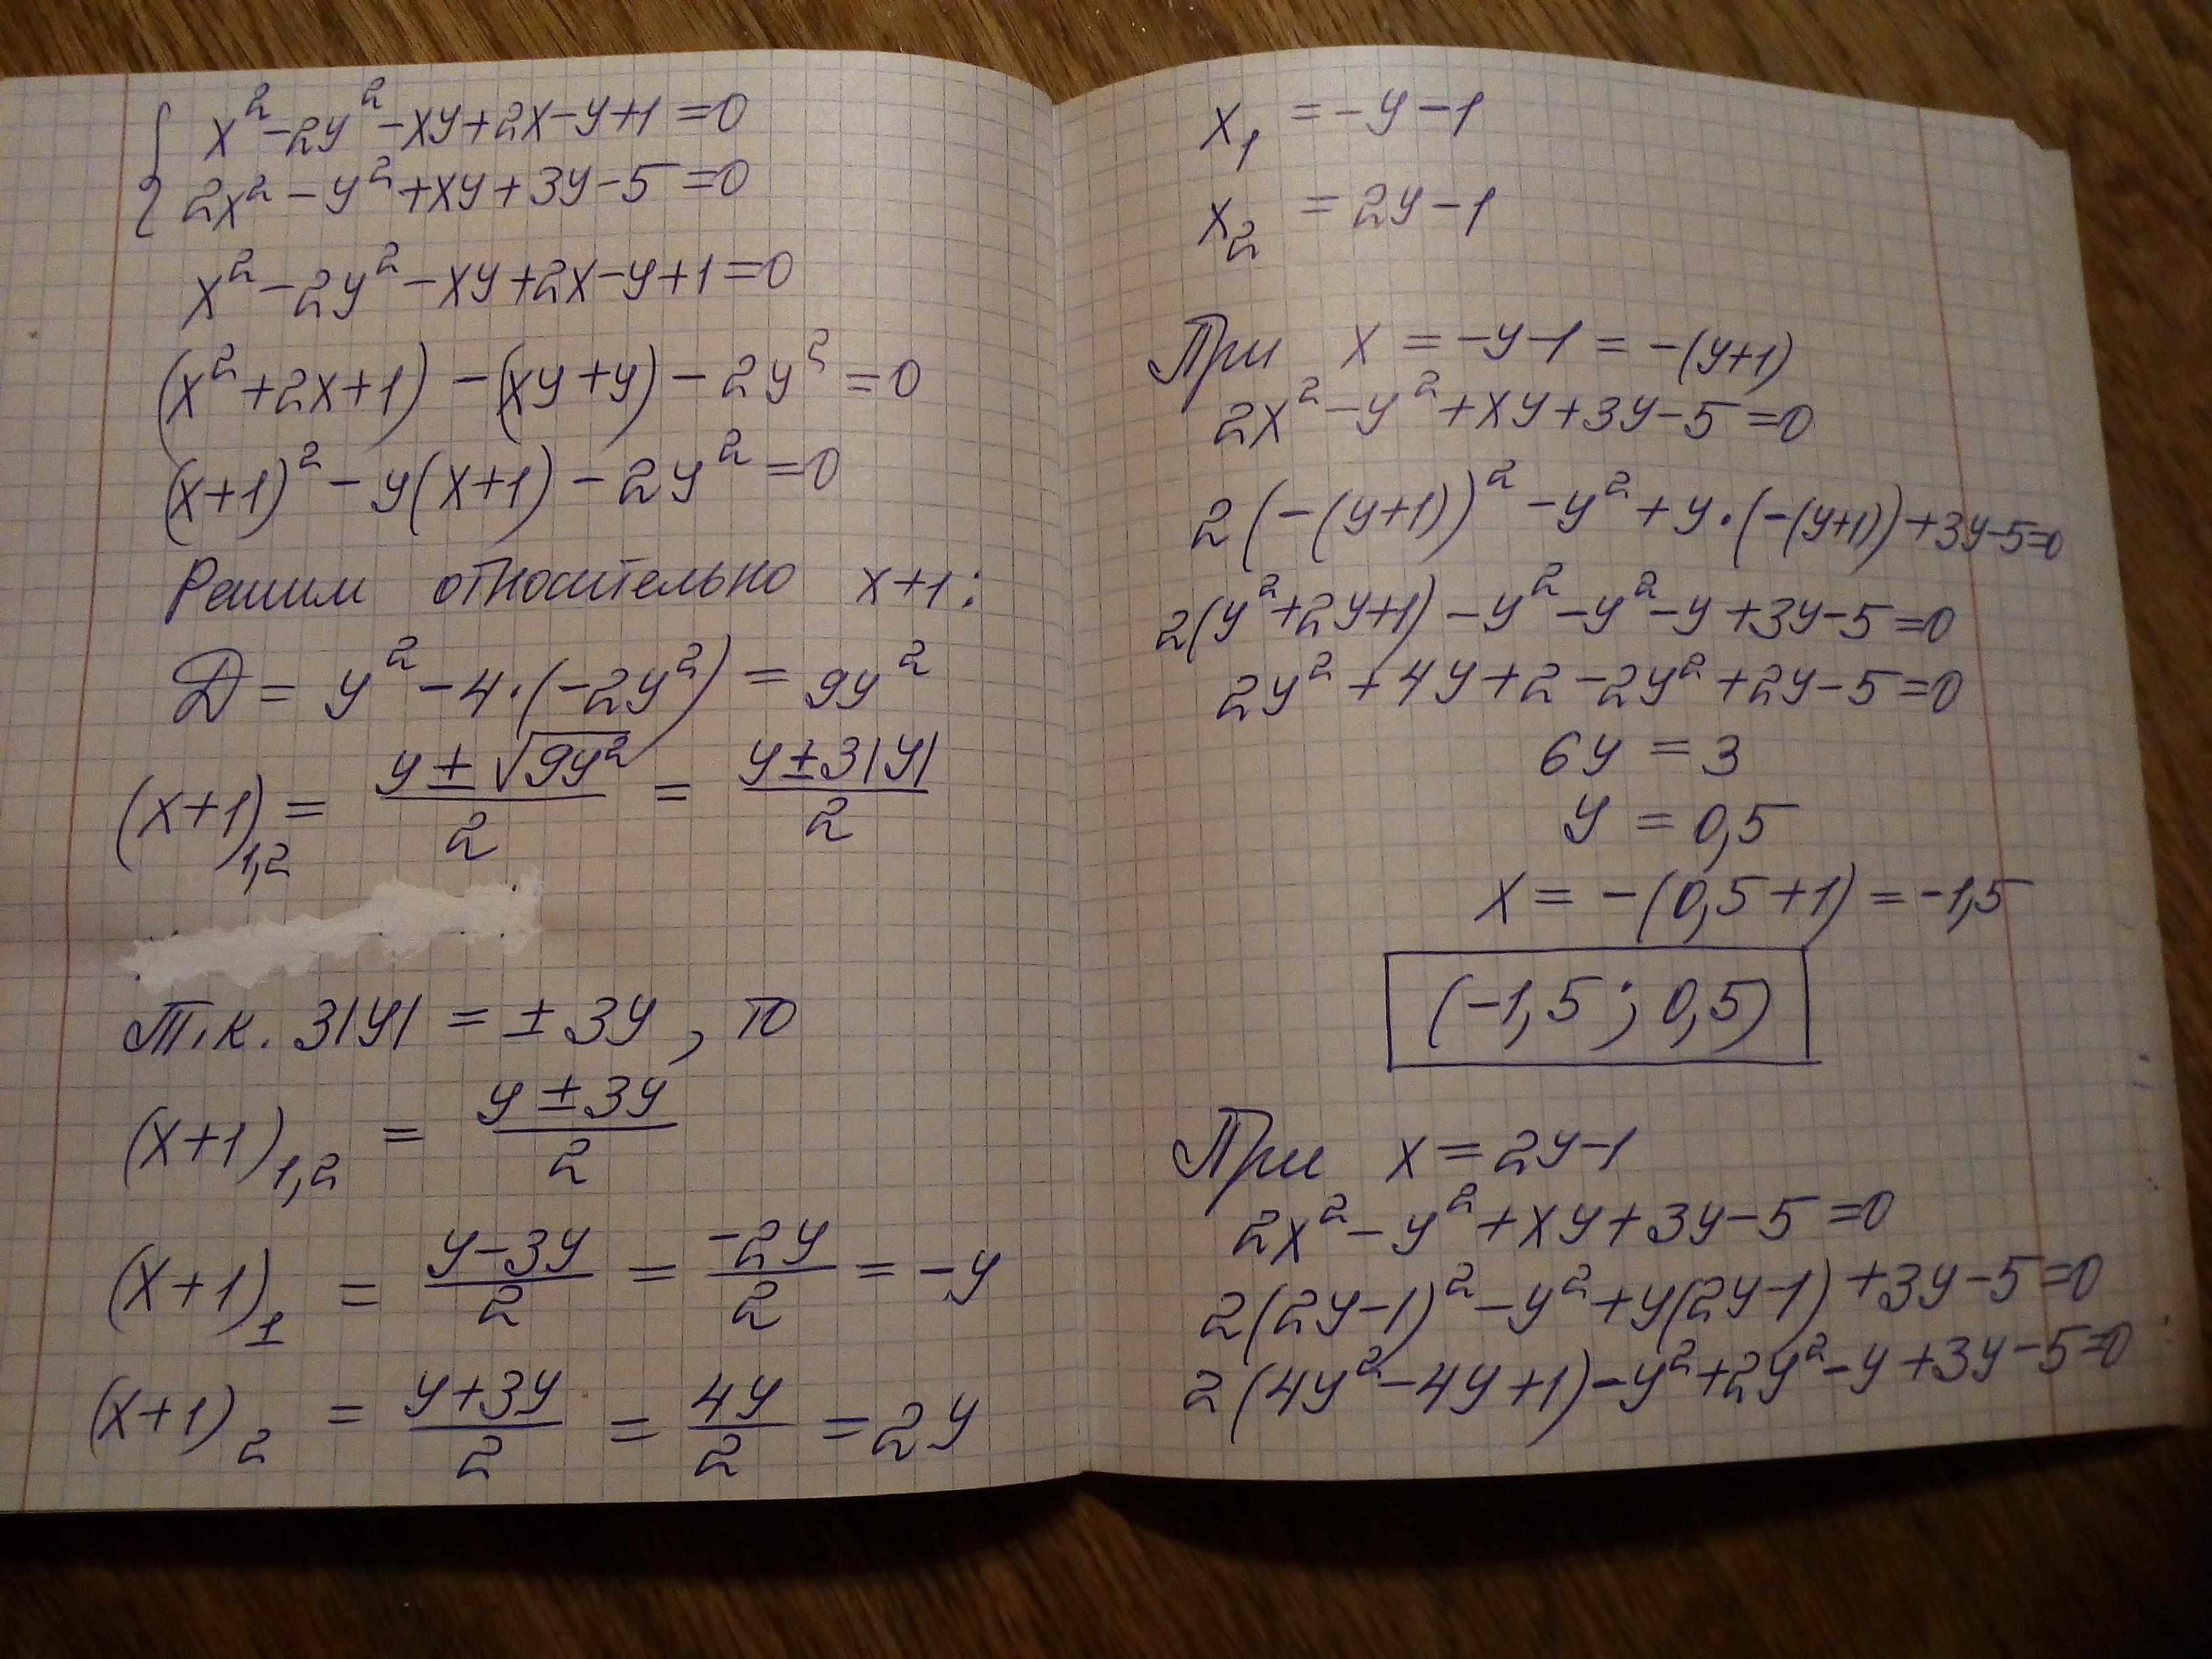 { x² - 2y² - xy + 2x - y + 1 = 0
2x² - y² + xy + 3y - 5 = 0
x² - 2y² - xy + 2x - y + 1 = 0
(x² + 2x + 1) - (xy + y) - 2y² = 0
(x+1)² - y(x+1) - 2y² = 0
Решим относительно x+1:
Д = y² - 4·(-2y²) = 9y²
(x+1)₁,₂ = (y ± √9y²)/2 = (y ± 3|y|)/2
Т.к. 3|y| = ± 3y, то
(x+1)₁,₂ = (y ± 3y)/2
(x+1)₁ = (y - 3y)/2 = -2y/2 = -y
(x+1)₂ = (y + 3y)/2 = 4y/2 = 2y
x₁ = -y - 1
x₂ = 2y - 1
При x = -y - 1 = -(y+1)
2x² - y² + xy + 3y - 5 = 0
2(-(y+1))² - y² + y·(-(y+1)) + 3y - 5 = 0
2(y² + 2y + 1) - y² - y² - y + 3y - 5 = 0
2y² + 4y + 2 - 2y² + 2y - 5 = 0
6y = 3
y = 0,5
x = -(0,5 + 1) = -1,5
(-1,5 ; 0,5)
При x = 2y - 1
2x² - y² + xy + 3y - 5 = 0
2(2y - 1)² - y² + y(2y - 1) + 3y - 5 = 0
2(4y² - 4y + 1) - y² + 2y² - y + 3y - 5 = 0